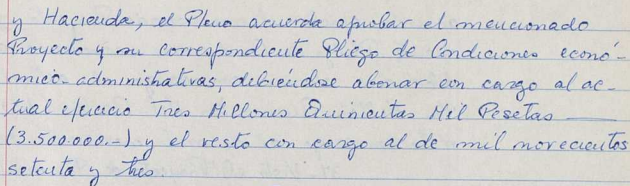 y Hacienda, el Pleno acuerda aprobar el mencionado
Proyecto y su correspondiente Pliego de Condiciones econó-
mico-administrativas, debiéndose abonar con cargo al ac-
tual ejercicio Tres Millones Quinientas Mil Pesetas ——
(3.500.000.-) y el resto con cargo al de mil novecientos
setenta y tres